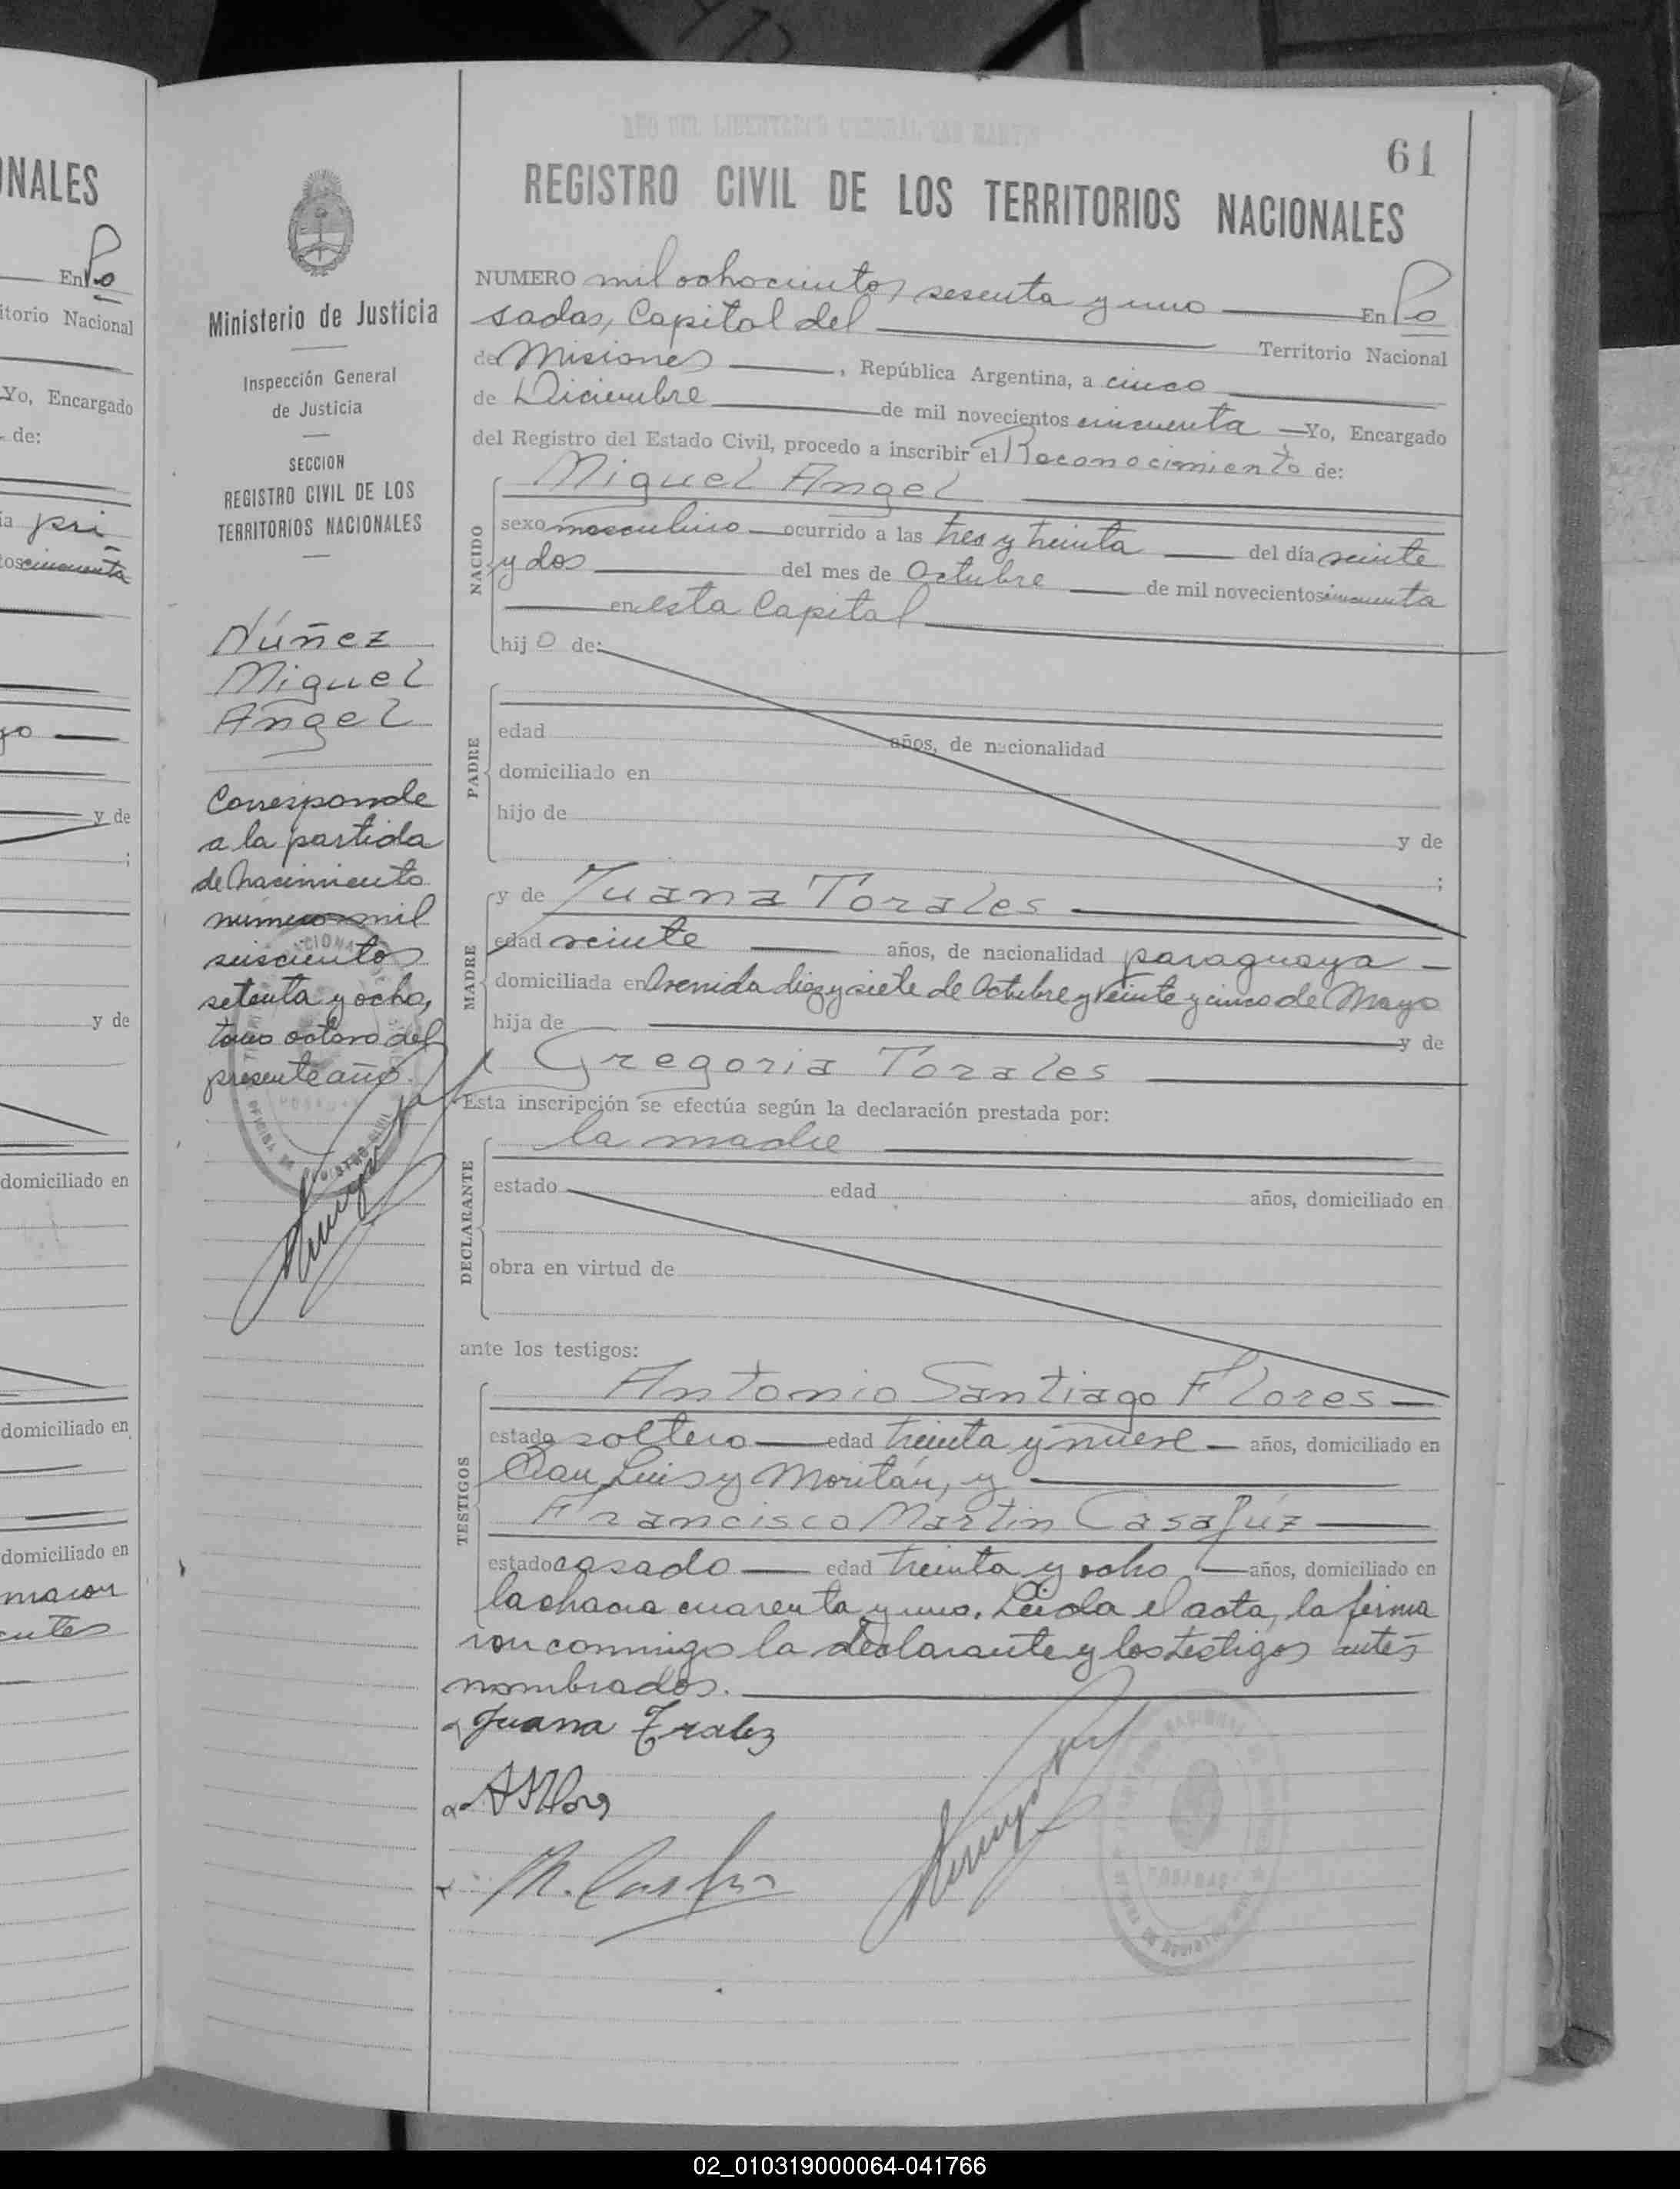 AÑO DEL LIBERTADOR GENERAL SAN MARTIN
61
REGISTRO CIVIL DE LOS TERRITORIOS NACIONALES
NUMERO mil ochocientos sesenta y uno En Po
sadas, Capital del Territorio Nacional
de Misiones, República Argentina, a cinco
de Diciembre de mil novecientos cincuenta Yo, Encargado
del Registro del Estado Civil, procedo a inscribir el Reconocimiento de:
Miguel Angel
NACIDO
sexo masculino ocurrido a las tres y treinta del día veinte
y dos del mes de Octubre de mil novecientos cincuenta
en esta Capital
hijo de:
PADRE
edad años, de nacionalidad
domiciliado en
hijo de
y de
;
MADRE
y de Juana Torales
edad veinte años, de nacionalidad paraguaya
domiciliada en Avenida diez y siete de Octubre y Veinte y cinco de Mayo
hija de y de
Gregoria Torales
Esta inscripción se efectúa según la declaración prestada por:
DECLARANTE
la madre
estado edad años, domiciliado en
obra en virtud de
ante los testigos:
TESTIGOS
Antonio Santiago Flores
estado soltero edad treinta y nueve años, domiciliado en
San Luis y Moritán, y
Francisco Martin Casafúz
estado casado edad treinta y ocho años, domiciliado en
la chacra cuarenta y uno. Leída el acta, la firma
ron conmigo la declarante y los testigos antes
nombrados.
Juana Tralez
ASFlores
Ministerio de Justicia
Inspección General
de Justicia
SECCION
REGISTRO CIVIL DE LOS
TERRITORIOS NACIONALES
Núñez
Miguel
Angel
Corresponde
a la partida
de nacimiento
número mil
seiscientos
setenta y ocho,
tomo octavo del
presente año.
ONALES
En Po
itorio Nacional
Yo, Encargado
de:
ía pri
tos cincuenta
yo
y de
;
y de
domiciliado en
domiciliado en
domiciliado en
maron
entes
02_010319000064-041766